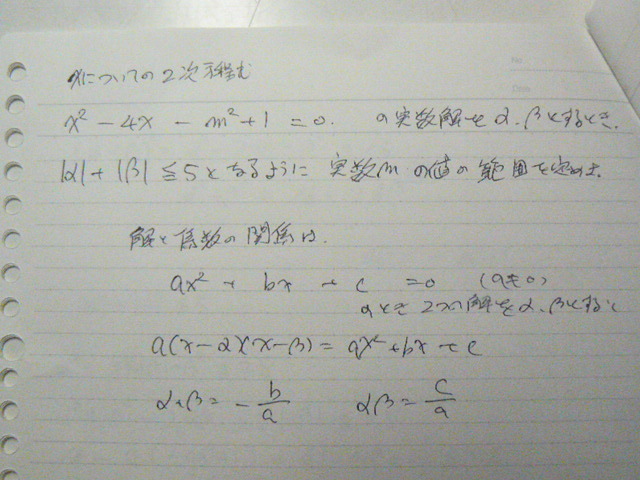 xについての2次方程式
x² - 4x - m² + 1 = 0. の実数解をα、βとするとき、
|α| + |β| ≦ 5となるように 実数mの値の範囲を定めよ.
解と係数の関係は.
ax² + bx + c = 0 (a≠0)
のとき 2つの解をα、βとすると
a(x-α)(x-β) = ax² + bx + c
α+β = - b/a αβ = c/a